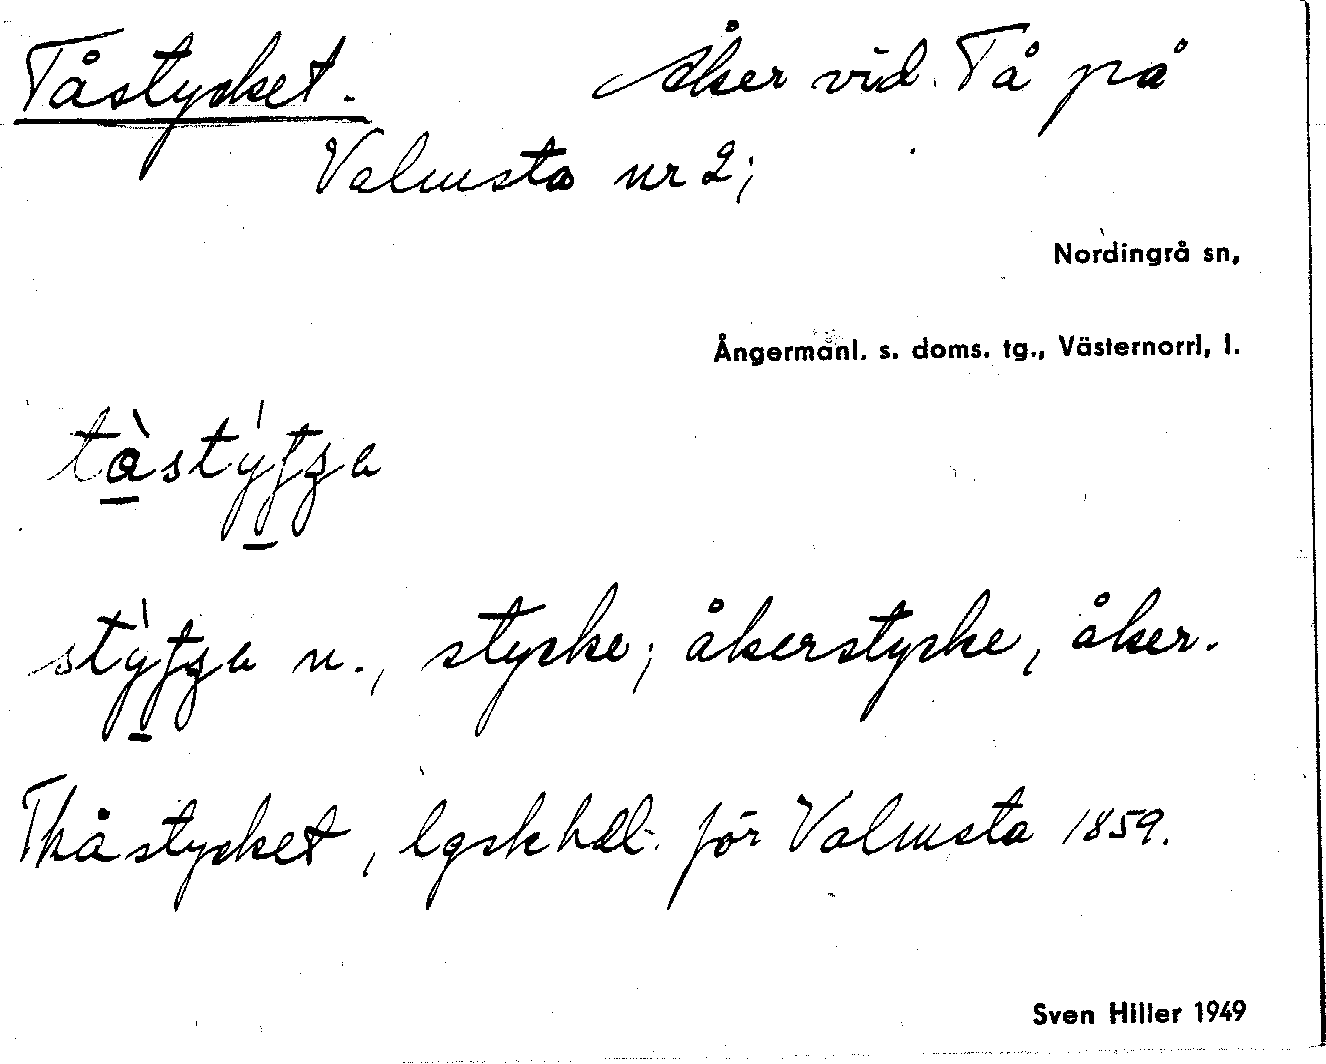 Tåstycket. Åker vid Tå på
Valmsta nr 2;
Nordingrå sn,
Ångermanl. s. doms. tg., Västernorrl. l.
n., stycke; åkerstycke, åker.
Thåstycket, lgskhdl. för Valmsta 1859.
Sven Hiller 1949